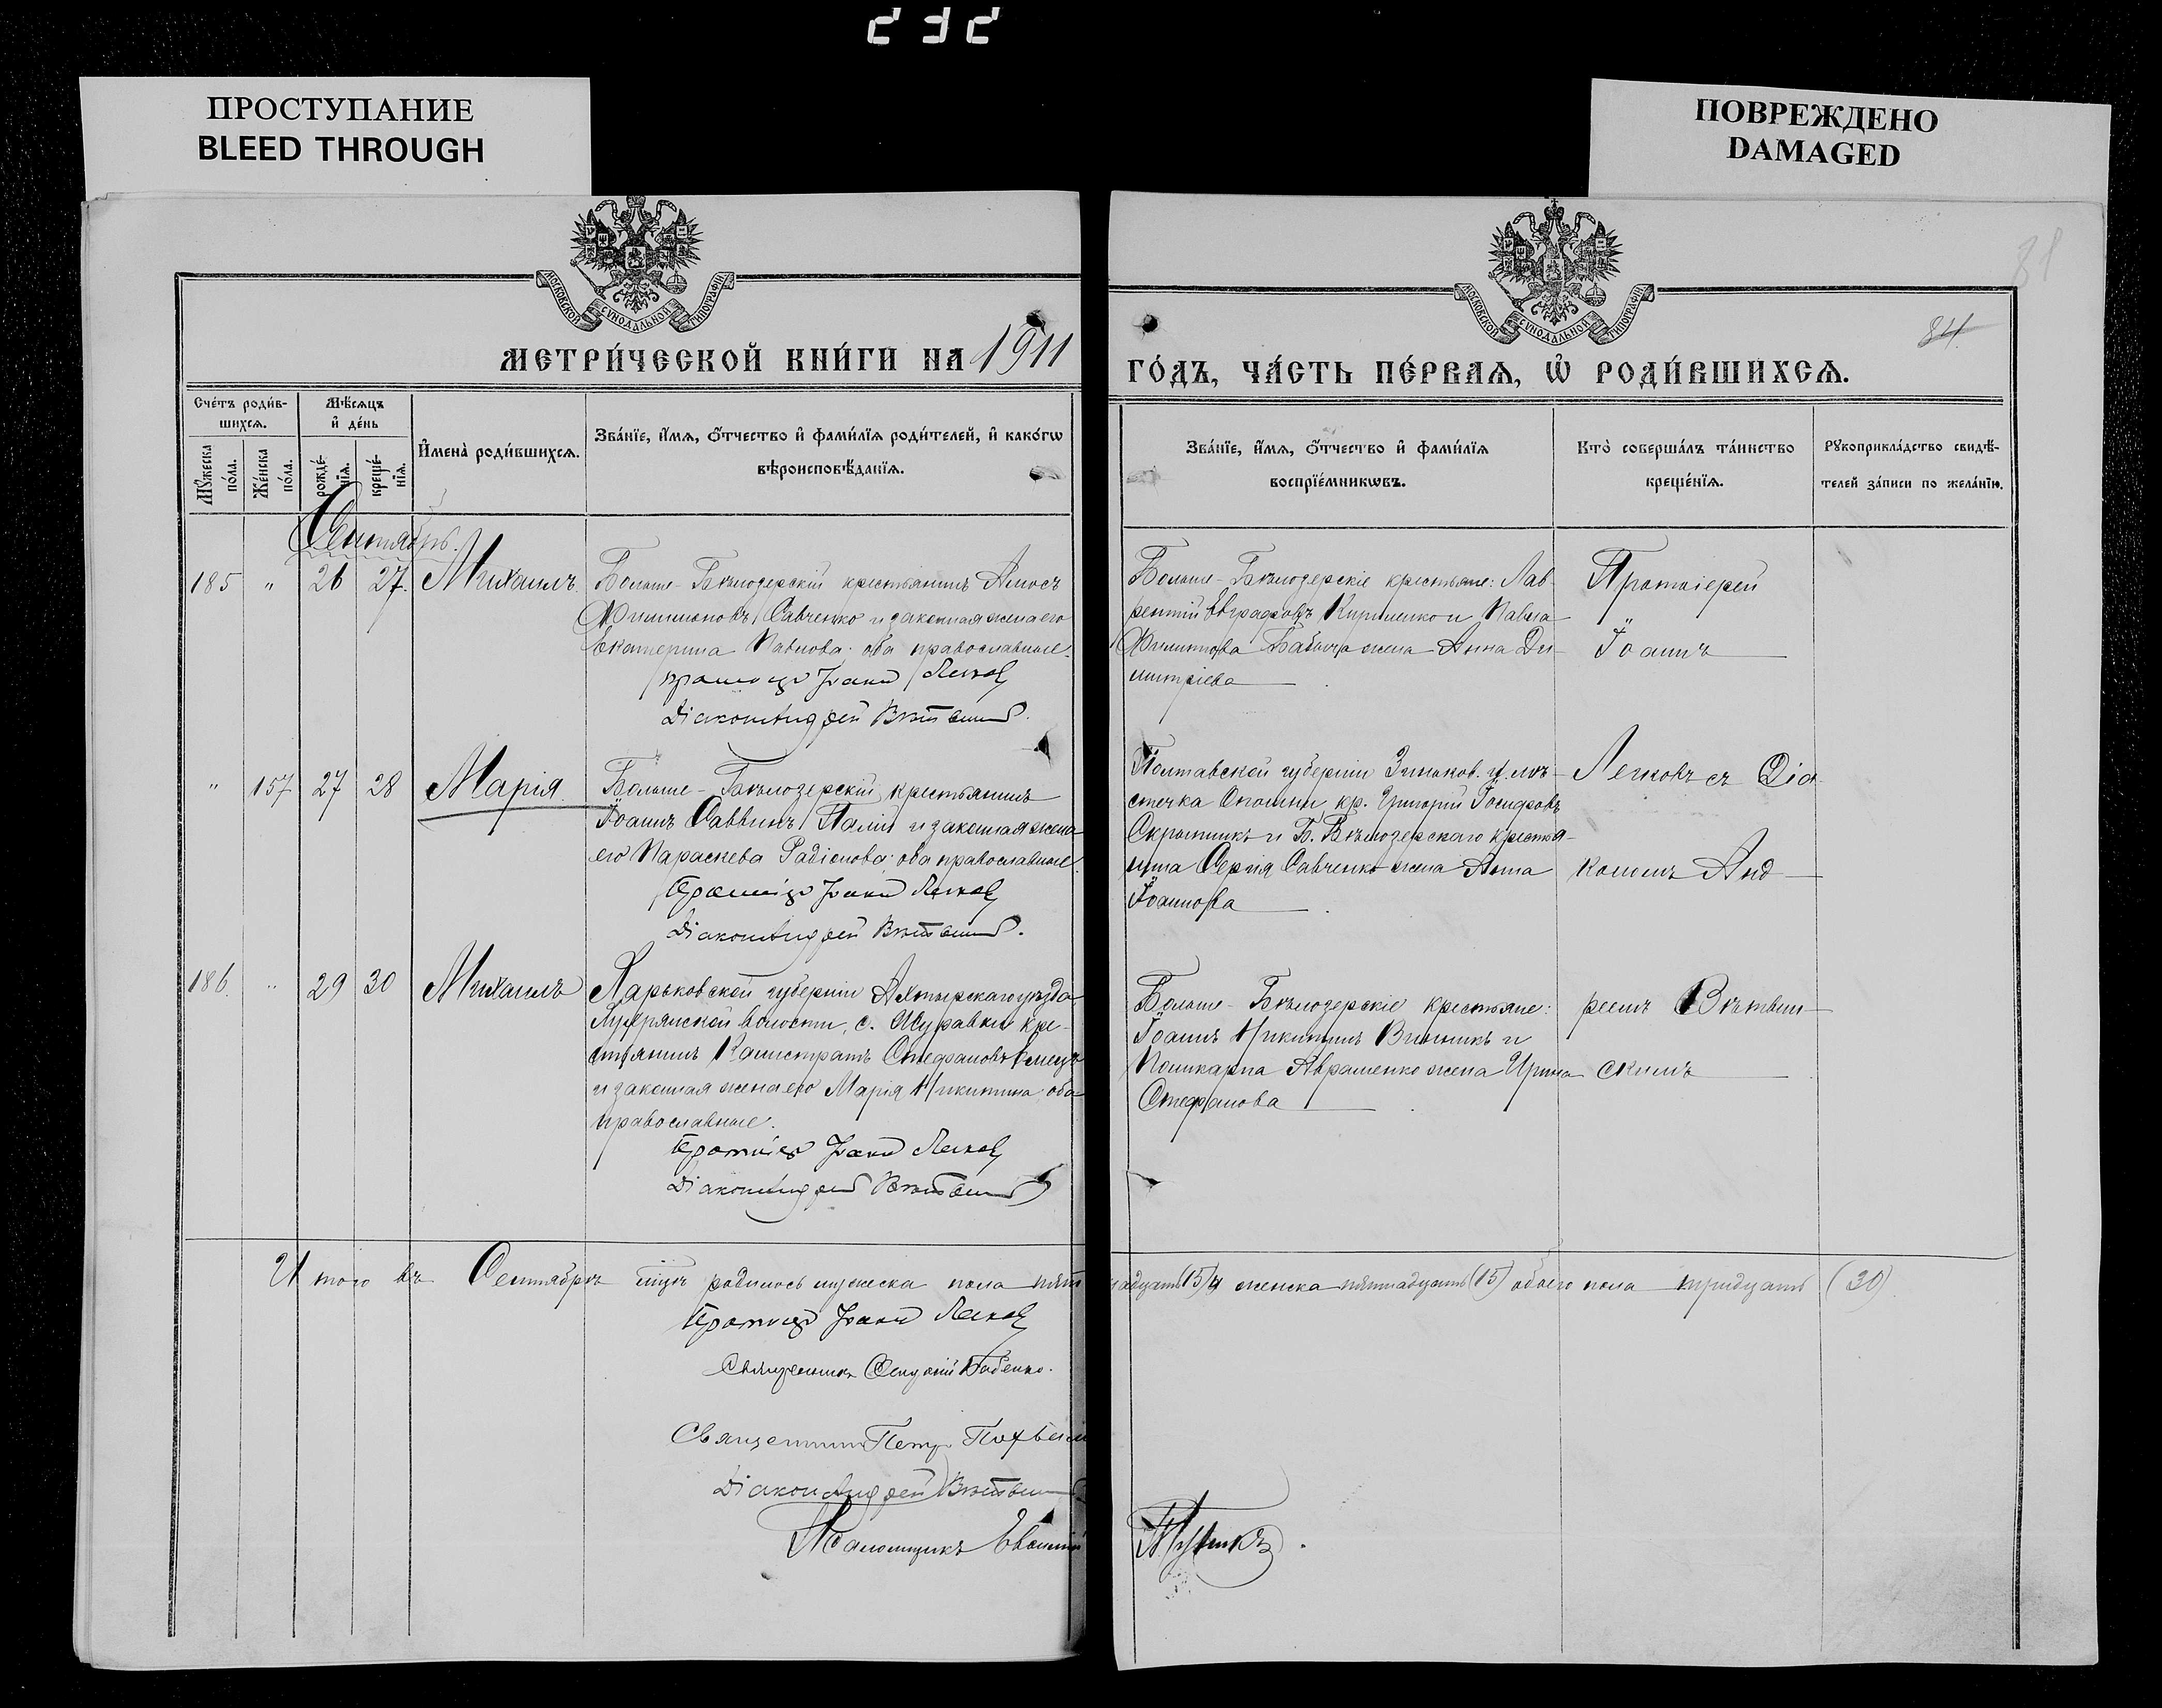 232
ПРОСТУПАНИЕ
BLEED THROUGH
ПОВРЕЖДЕНО
DAMAGED
МОСКОВСКОЙ СѴНОДАЛЬНОЙ ТИПОГРАФІИ
МОСКОВСКОЙ СѴНОДАЛЬНОЙ ТИПОГРАФІИ
81
84
МЕТРИ́ЧЕСКОЙ КНИ́ГИ НА 1911
ГО́ДЪ, ЧА́СТЬ ПЕ́РВАѦ, Ѡ҆ РОДИ́ВШИХСѦ.
Сче́тъ роди́в-
шихсѧ.
Мѣ́сѧцъ
и҆ де́нь
Мꙋ́жеска по́ла.
Же́нска по́ла.
рожде́-нїѧ.
креще́-нїѧ.
И҆мена̀ роди́вшихсѧ.
Зва́нїе, и҆́мѧ, ѻ҆́тчество и҆ фами́лїѧ роди́телей, и҆ како́гѡ
вѣроисповѣ́данїѧ.
Зва́нїе, и҆́мѧ, ѻ҆́тчество и҆ фами́лїѧ
воспрїе́мникѡвъ.
Кто̀ соверша́лъ та́инство
креще́нїѧ.
Рꙋкоприкла́дство свидѣ́-
телей за́писи по жела́нїю.
Сентябрь.
185 " 26 27. Михаилъ.
Больше-Бѣлозерскій крестьянинъ Амосъ
Филимоновъ Савченко и законная жена его
Екатерина Павлова: оба православные.
Іоаннъ Легковъ
Діаконъ Андрей Вѣтвинскій.
Больше-Бѣлозерскіе крестьяне: Лав-
рентій Евграфовъ Кириленко и Павла
Филиппова жена Анна Ди-
митріева
Протоіерей
Іоаннъ
" 157 27 28 Марія.
Больше-Бѣлозерскій крестьянинъ
Іоаннъ Саввинъ Палій и законная жена
его Параскева Радіонова: оба православные.
Протоіер Іоаннъ Легковъ
Діаконъ Андрей Вѣтвинскій.
Полтавской губерніи Зиньков. у. мѣ-
стечка Опошни кр. Григорій Іосифовъ
Скрыпникъ и Б. Бѣлозерскаго крестья-
нина Сергія Савченко жена Анна
Іоаннова
Легковъ съ Діа-
кономъ Анд-
186. " 29 30 Михаилъ
Харьковской губерніи Ахтырскаго уѣзда
волости, с. Журавки кре-
стьянинъ Калистратъ Стефановъ
и законная жена его Марія Никитина: оба
православные.
Протоіер Іоаннъ Легковъ
Діаконъ Андрей Вѣтвинскій
Больше-Бѣлозерскіе крестьяне:
Іоаннъ Никитинъ Винникъ и
Поликарпа Авраменко жена Ирина
Стефанова
реемъ Вѣтвин-
скимъ
Итого въ Сентябрѣ мцѣ родилось мужеска пола пят
надцать (15) и женска пятнадцать (15) обоего пола тридцать (30).
Протоіер Іоаннъ Легковъ
Священникъ Бабенко.
Священникъ Петръ
Діаконъ Андрей Вѣтвинскій
Псаломщикъ Евѳимій